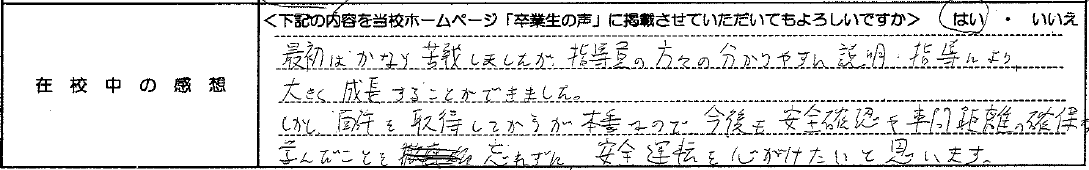 <下記の内容を当校ホームページ「卒業生の声」に掲載させていただいてもよろしいですか> はい ・ いいえ
在校中の感想
最初はかなり苦戦しましたが、指導員の方々の分かりやすい説明・指導により、
大きく成長することができました。
しかし、免許を取得してからが本番なので、今後も安全確認や車間距離の確保等
学んだことを忘れずに、安全運転を心がけたいと思います。